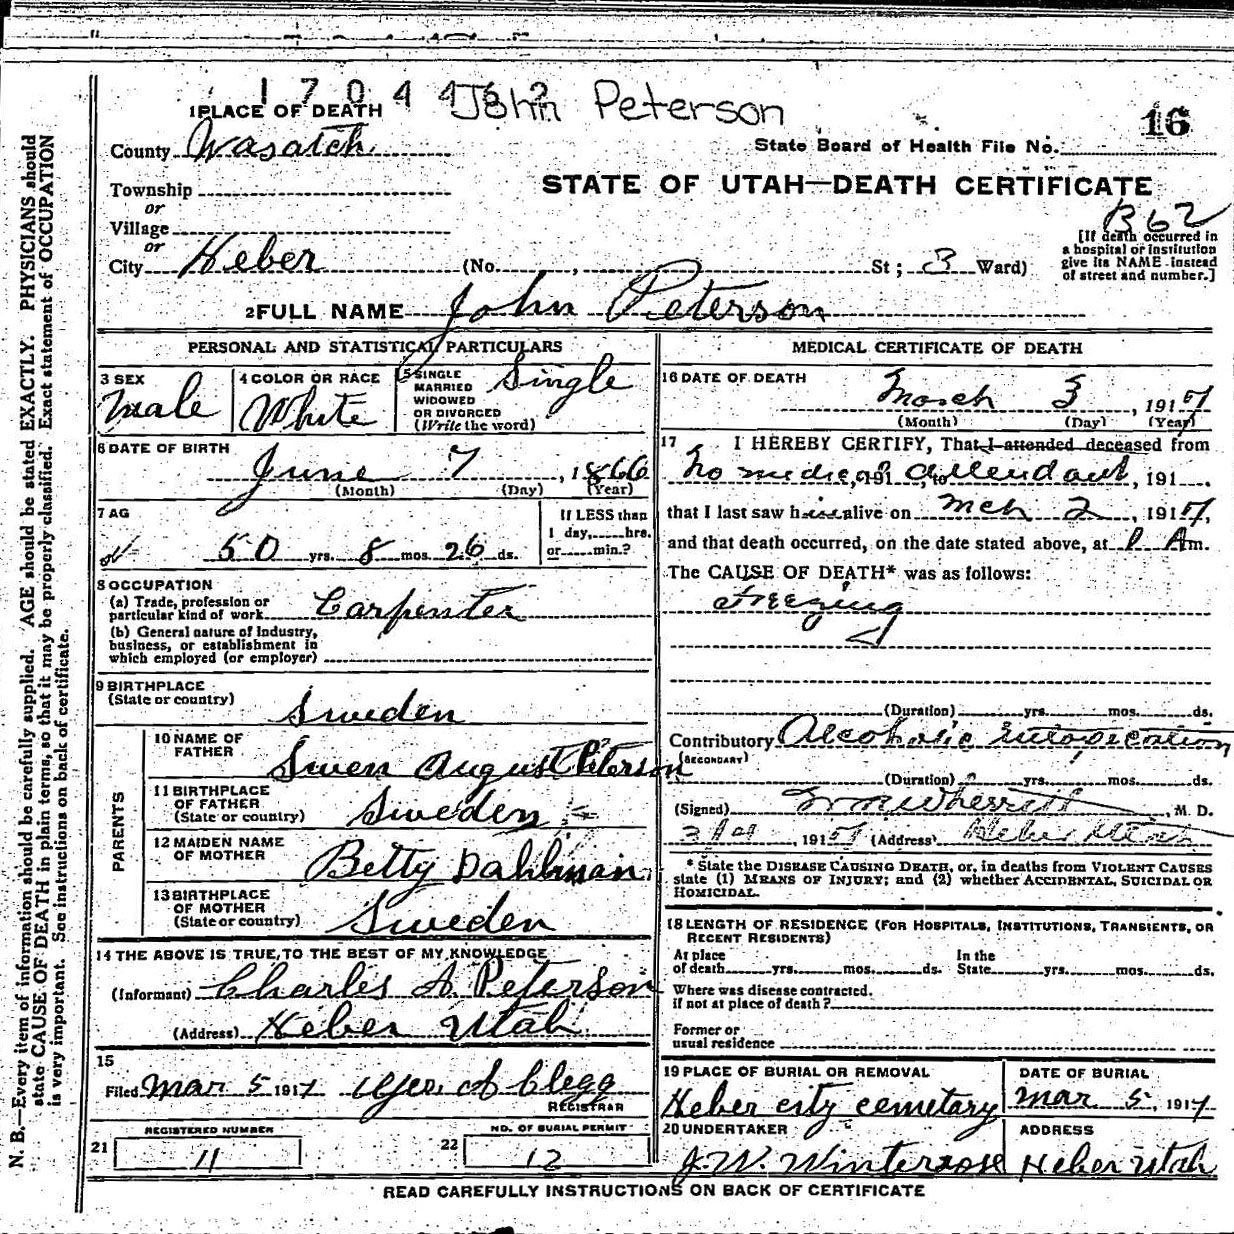 1 7 0 4 4 6 2 John Peterson
16
1 PLACE OF DEATH
County Wasatch
State Board of Health File No.
Township
STATE OF UTAH—DEATH CERTIFICATE
or
Village
B 62
or
City Heber (No. , St ; 3 Ward)
[If death occurred in
a hospital or institution
give its NAME instead
of street and number.]
2 FULL NAME John Peterson
PERSONAL AND STATISTICAL PARTICULARS
3 SEX
Male
4 COLOR OR RACE
White
5 SINGLE
MARRIED
WIDOWED
OR DIVORCED
(Write the word)
Single
6 DATE OF BIRTH
June 7, 1866
(Month) (Day) (Year)
7 AG
50 yrs. 8 mos. 26 ds.
If LESS than
1 day, hrs.
or min.?
8 OCCUPATION
(a) Trade, profession or
particular kind of work Carpenter
(b) General nature of Industry,
business, or establishment in
which employed (or employer)
9 BIRTHPLACE
(State or country)
Sweden
PARENTS
10 NAME OF
FATHER
Swen August Peterson
11 BIRTHPLACE
OF FATHER
(State or country)
Sweden
12 MAIDEN NAME
OF MOTHER
Betty Dahlman
13 BIRTHPLACE
OF MOTHER
(State or country)
Sweden
14 THE ABOVE IS TRUE, TO THE BEST OF MY KNOWLEDGE
(Informant) Charles A. Peterson
(Address) Heber Utah
15
Filed Mar 5 1917 Geo. A Clegg
REGISTRAR
REGISTERED NUMBER
21 11
NO. OF BURIAL PERMIT
22 12
MEDICAL CERTIFICATE OF DEATH
16 DATE OF DEATH
March 3, 1917
(Month) (Day) (Year)
17 I HEREBY CERTIFY, That I attended deceased from
No medical, 191 , to attendant, 191 .
that I last saw h alive on Mch 2, 1917,
and that death occurred, on the date stated above, at 1 A m.
The CAUSE OF DEATH* was as follows:
Freezing
(Duration) yrs. mos. ds.
Contributory Alcoholic intoxication
(SECONDARY)
(Duration) yrs. mos. ds.
(Signed) Wherritt, M. D.
, 1917 (Address) Heber Utah
* State the DISEASE CAUSING DEATH, or, in deaths from VIOLENT CAUSES
state (1) MEANS OF INJURY; and (2) whether ACCIDENTAL, SUICIDAL OR
HOMICIDAL.
18 LENGTH OF RESIDENCE (FOR HOSPITALS, INSTITUTIONS, TRANSIENTS, OR
RECENT RESIDENTS)
At place
of death yrs. mos. ds.
In the
State yrs. mos. ds.
Where was disease contracted,
if not at place of death?
Former or
usual residence
19 PLACE OF BURIAL OR REMOVAL
Heber city cemetary
DATE OF BURIAL
Mar 5, 1917
20 UNDERTAKER
J. W. Winterrose
ADDRESS
Heber Utah
READ CAREFULLY INSTRUCTIONS ON BACK OF CERTIFICATE
N. B.—Every item of information should be carefully supplied. AGE should be stated EXACTLY. PHYSICIANS should
state CAUSE OF DEATH in plain terms, so that it may be properly classified. Exact statement of OCCUPATION
is very important. See instructions on back of certificate.